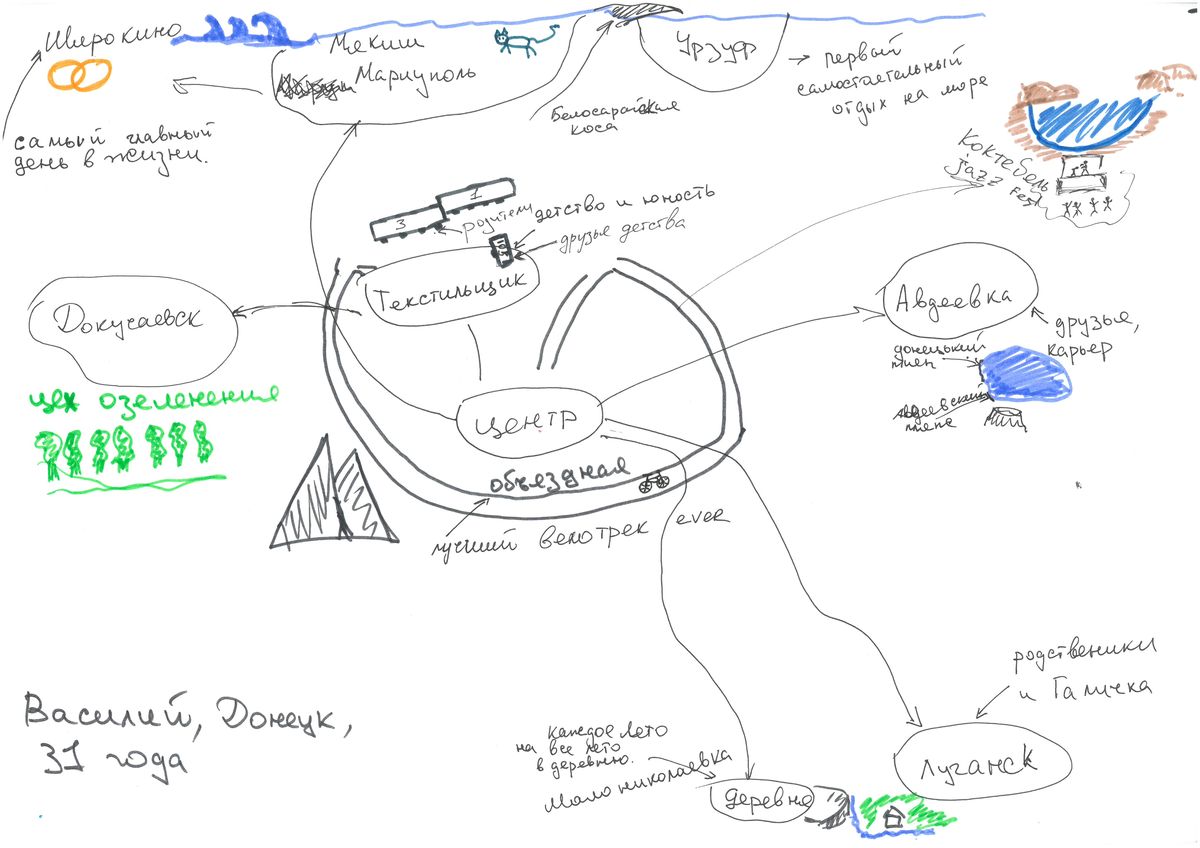 Широкино
Мекиш
Мариуполь
Урзуф
→ первый
самостоятельный
отдых на море
Белосарайская
коса
самый главный
день в жизни.
Коктебель
jazz Fest
1
3
родители
детство и юность
друзья детства
Текстильщик
Докучаевск
Авдеевка
друзья,
карьер
донецкий
пляж
Авдеевский
цех озеленения
центр
объездная
лучший велотрек ever
родственики
и Галичка
Василий, Донецк,
31 года
каждое лето
на все лето
в деревню.
Малониколаевка
деревня
Луганск